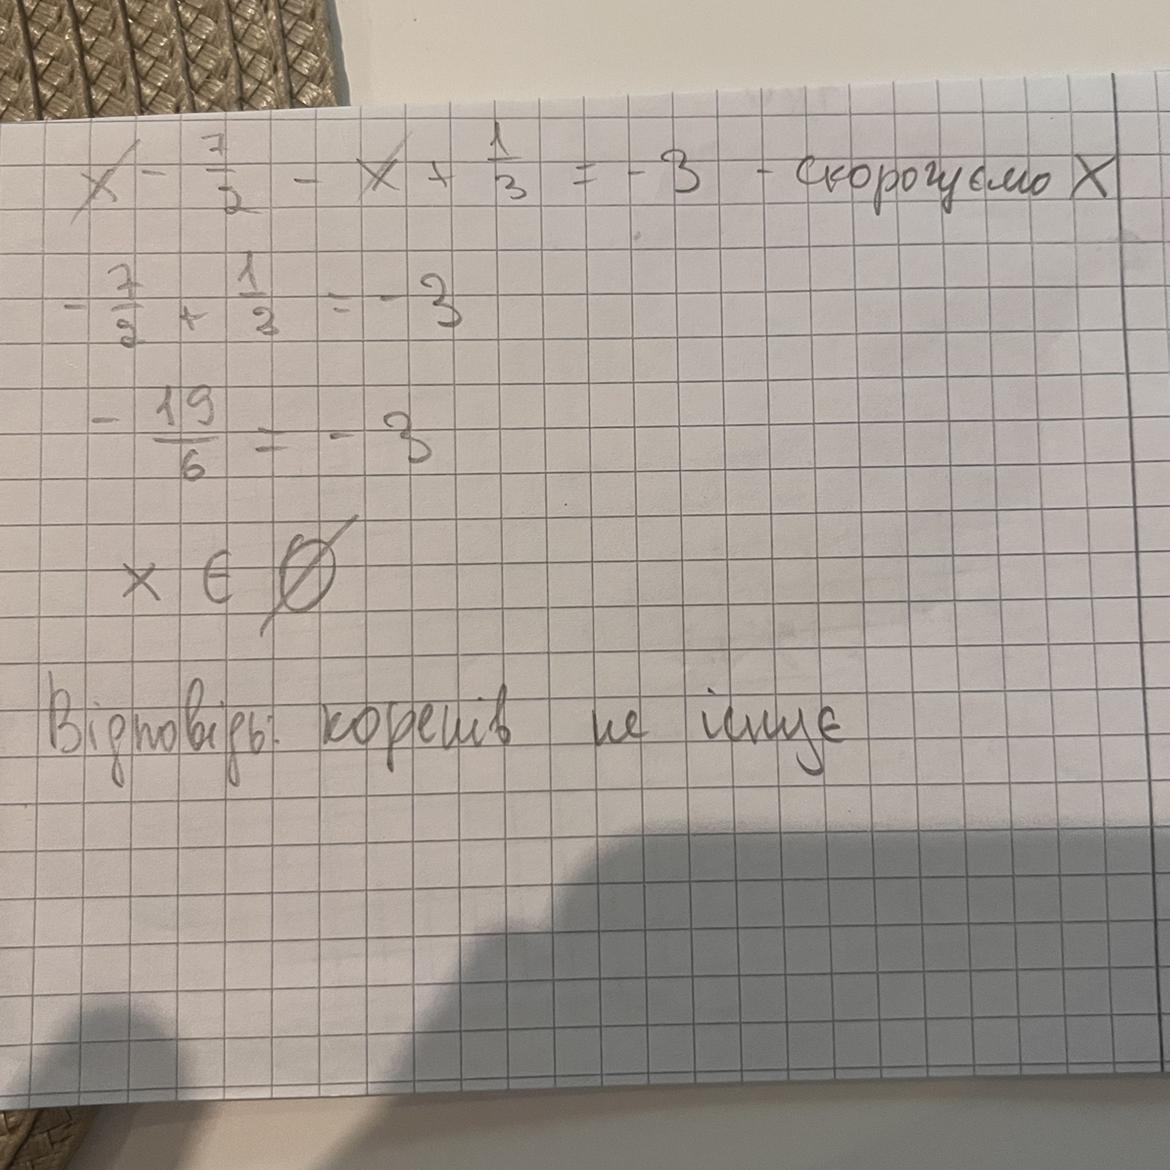 x - 7/2 - x + 1/3 = - 3 - скорочуємо X
- 7/2 + 1/3 = - 3
- 19/6 = - 3
x ∈ ∅
Відповідь: коренів не існує